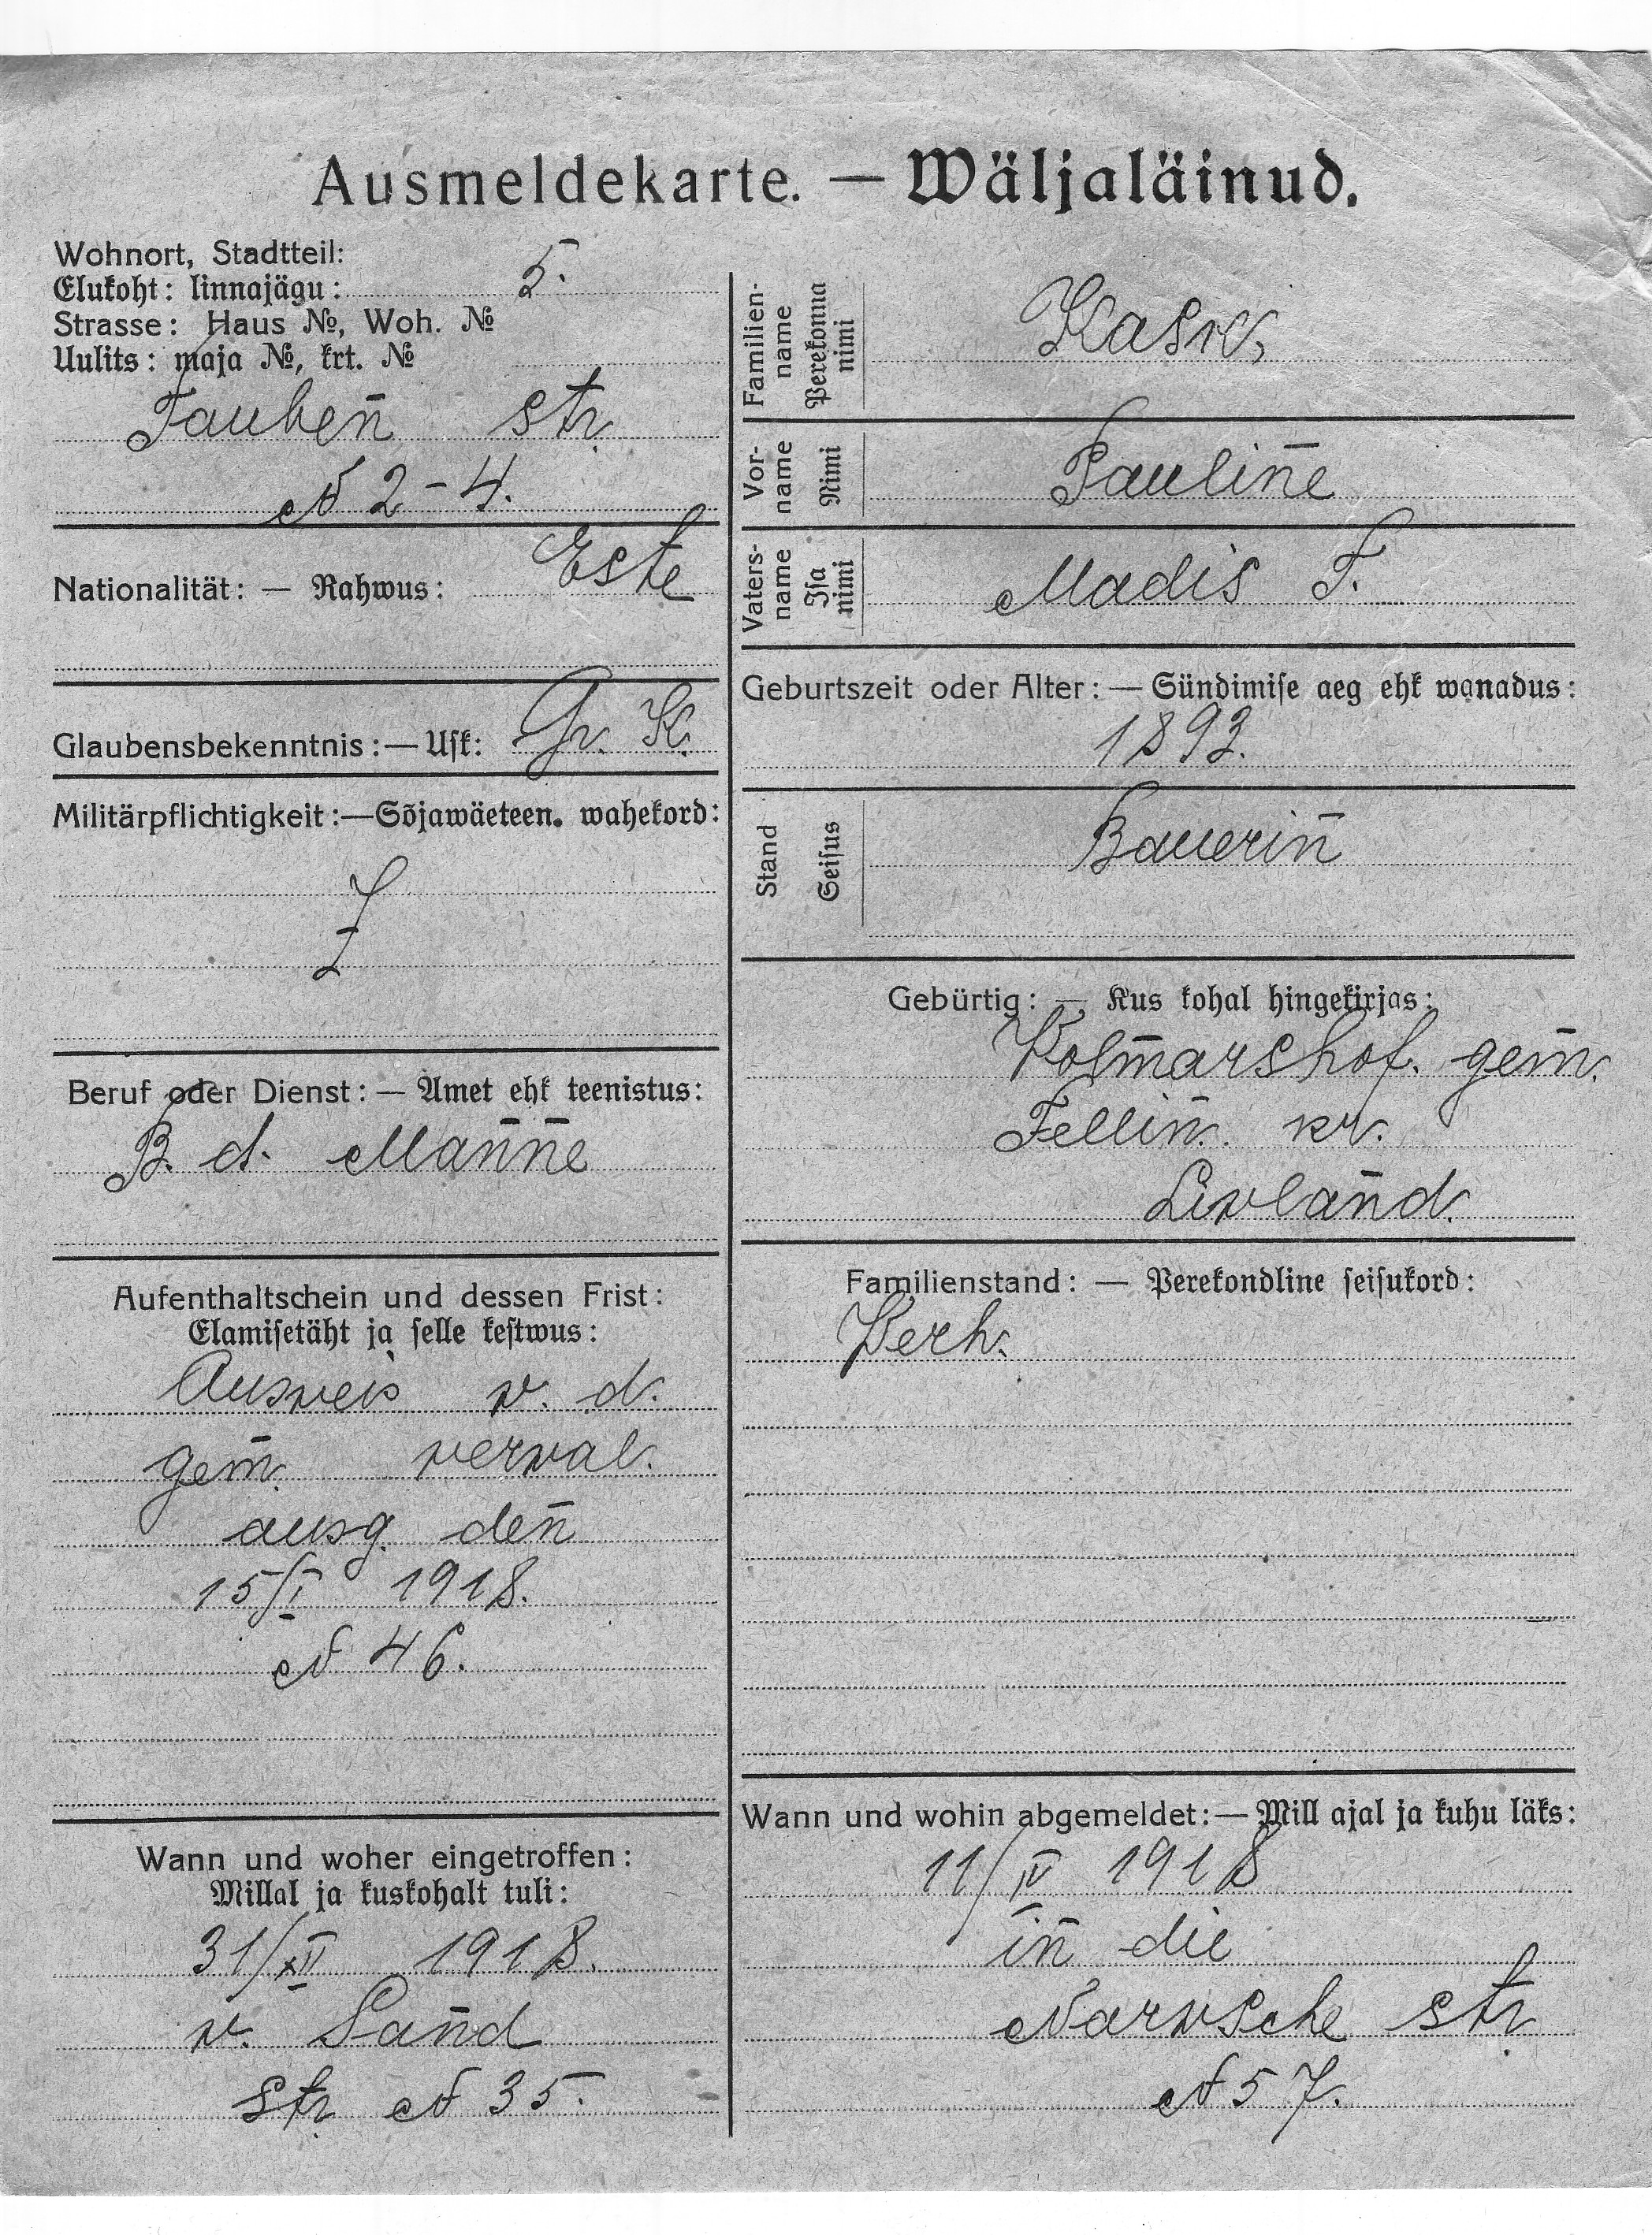 Ausmeldekarte. — Wäljaläinud.
Wohnort, Stadtteil:
Elukoht: linnajägu: 5.
Strasse: Haus №, Woh. №
Uulits: maja №, krt. №
Tauben str.
№ 2-4.
Nationalität: — Rahwus: Este
Glaubensbekenntnis: — Usk: Gr. K.
Militärpflichtigkeit: — Sõjawäeteen. wahekord:
Beruf oder Dienst: — Amet ehk teenistus:
B. d. Manne
Aufenthaltschein und dessen Frist:
Elamisetäht ja selle kestwus:
Ausweis v. d.
gem. verwal.
ausg. den
15/I 1918.
№ 46.
Wann und woher eingetroffen:
Millal ja kuskohalt tuli:
31/XII 1918.
v. Sand
str № 35.
Familien-
name
Perekonna
nimi
Kask,
Vor-
name
Nimi
Pauline
Vaters-
name
Isa
nimi
Madis T.
Geburtszeit oder Alter: — Sündimise aeg ehk wanadus:
1893.
Stand
Seisus
Bauerin
Gebürtig: — Kus kohal hingekirjas:
Kolmarshof. gem.
Fellin. kr.
Livland.
Familienstand: — Perekondline seisukord:
Verh.
Wann und wohin abgemeldet: — Mill ajal ja kuhu läks:
11/IV 1918
in die
Narvsche str
№ 57.